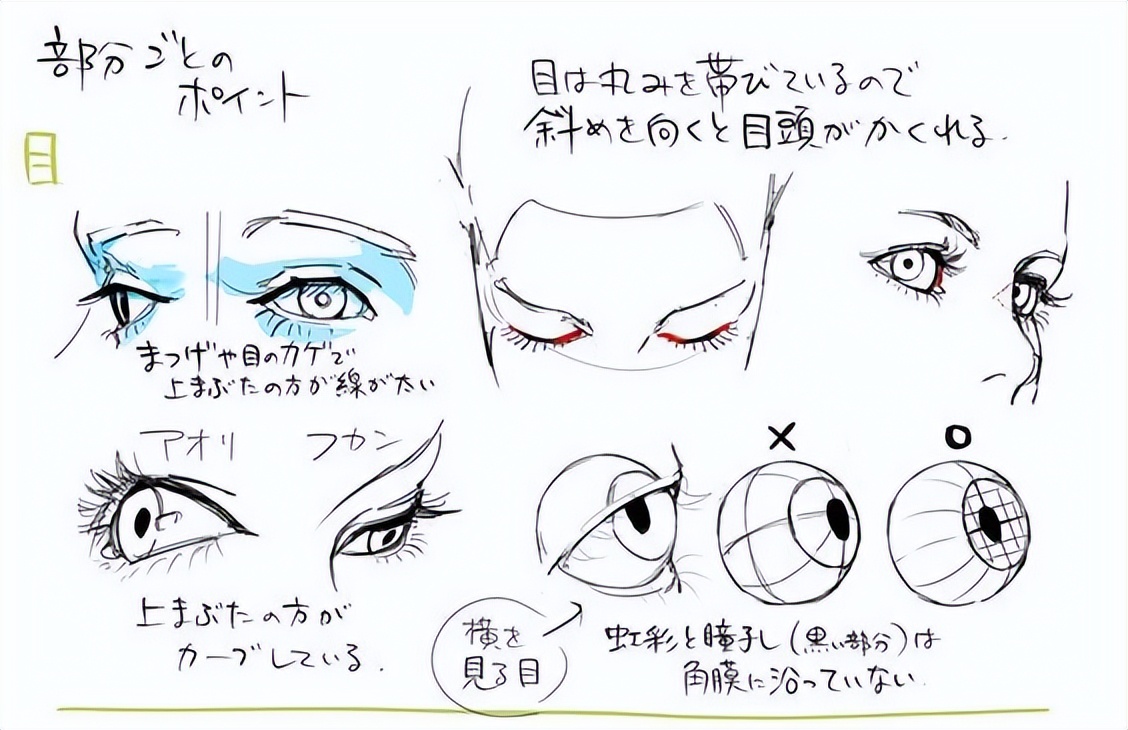 部分ごとの
ポイント
目
目は丸みを帯びているので
斜めを向くと目頭がかくれる.
まつげや目のカゲで
上まぶたの方が線が太い
アオリ
フカン
上まぶたの方が
カーブしている.
×
○
横を
見る目
虹彩と瞳子し(黒い部分)は
角膜に沿っていない.